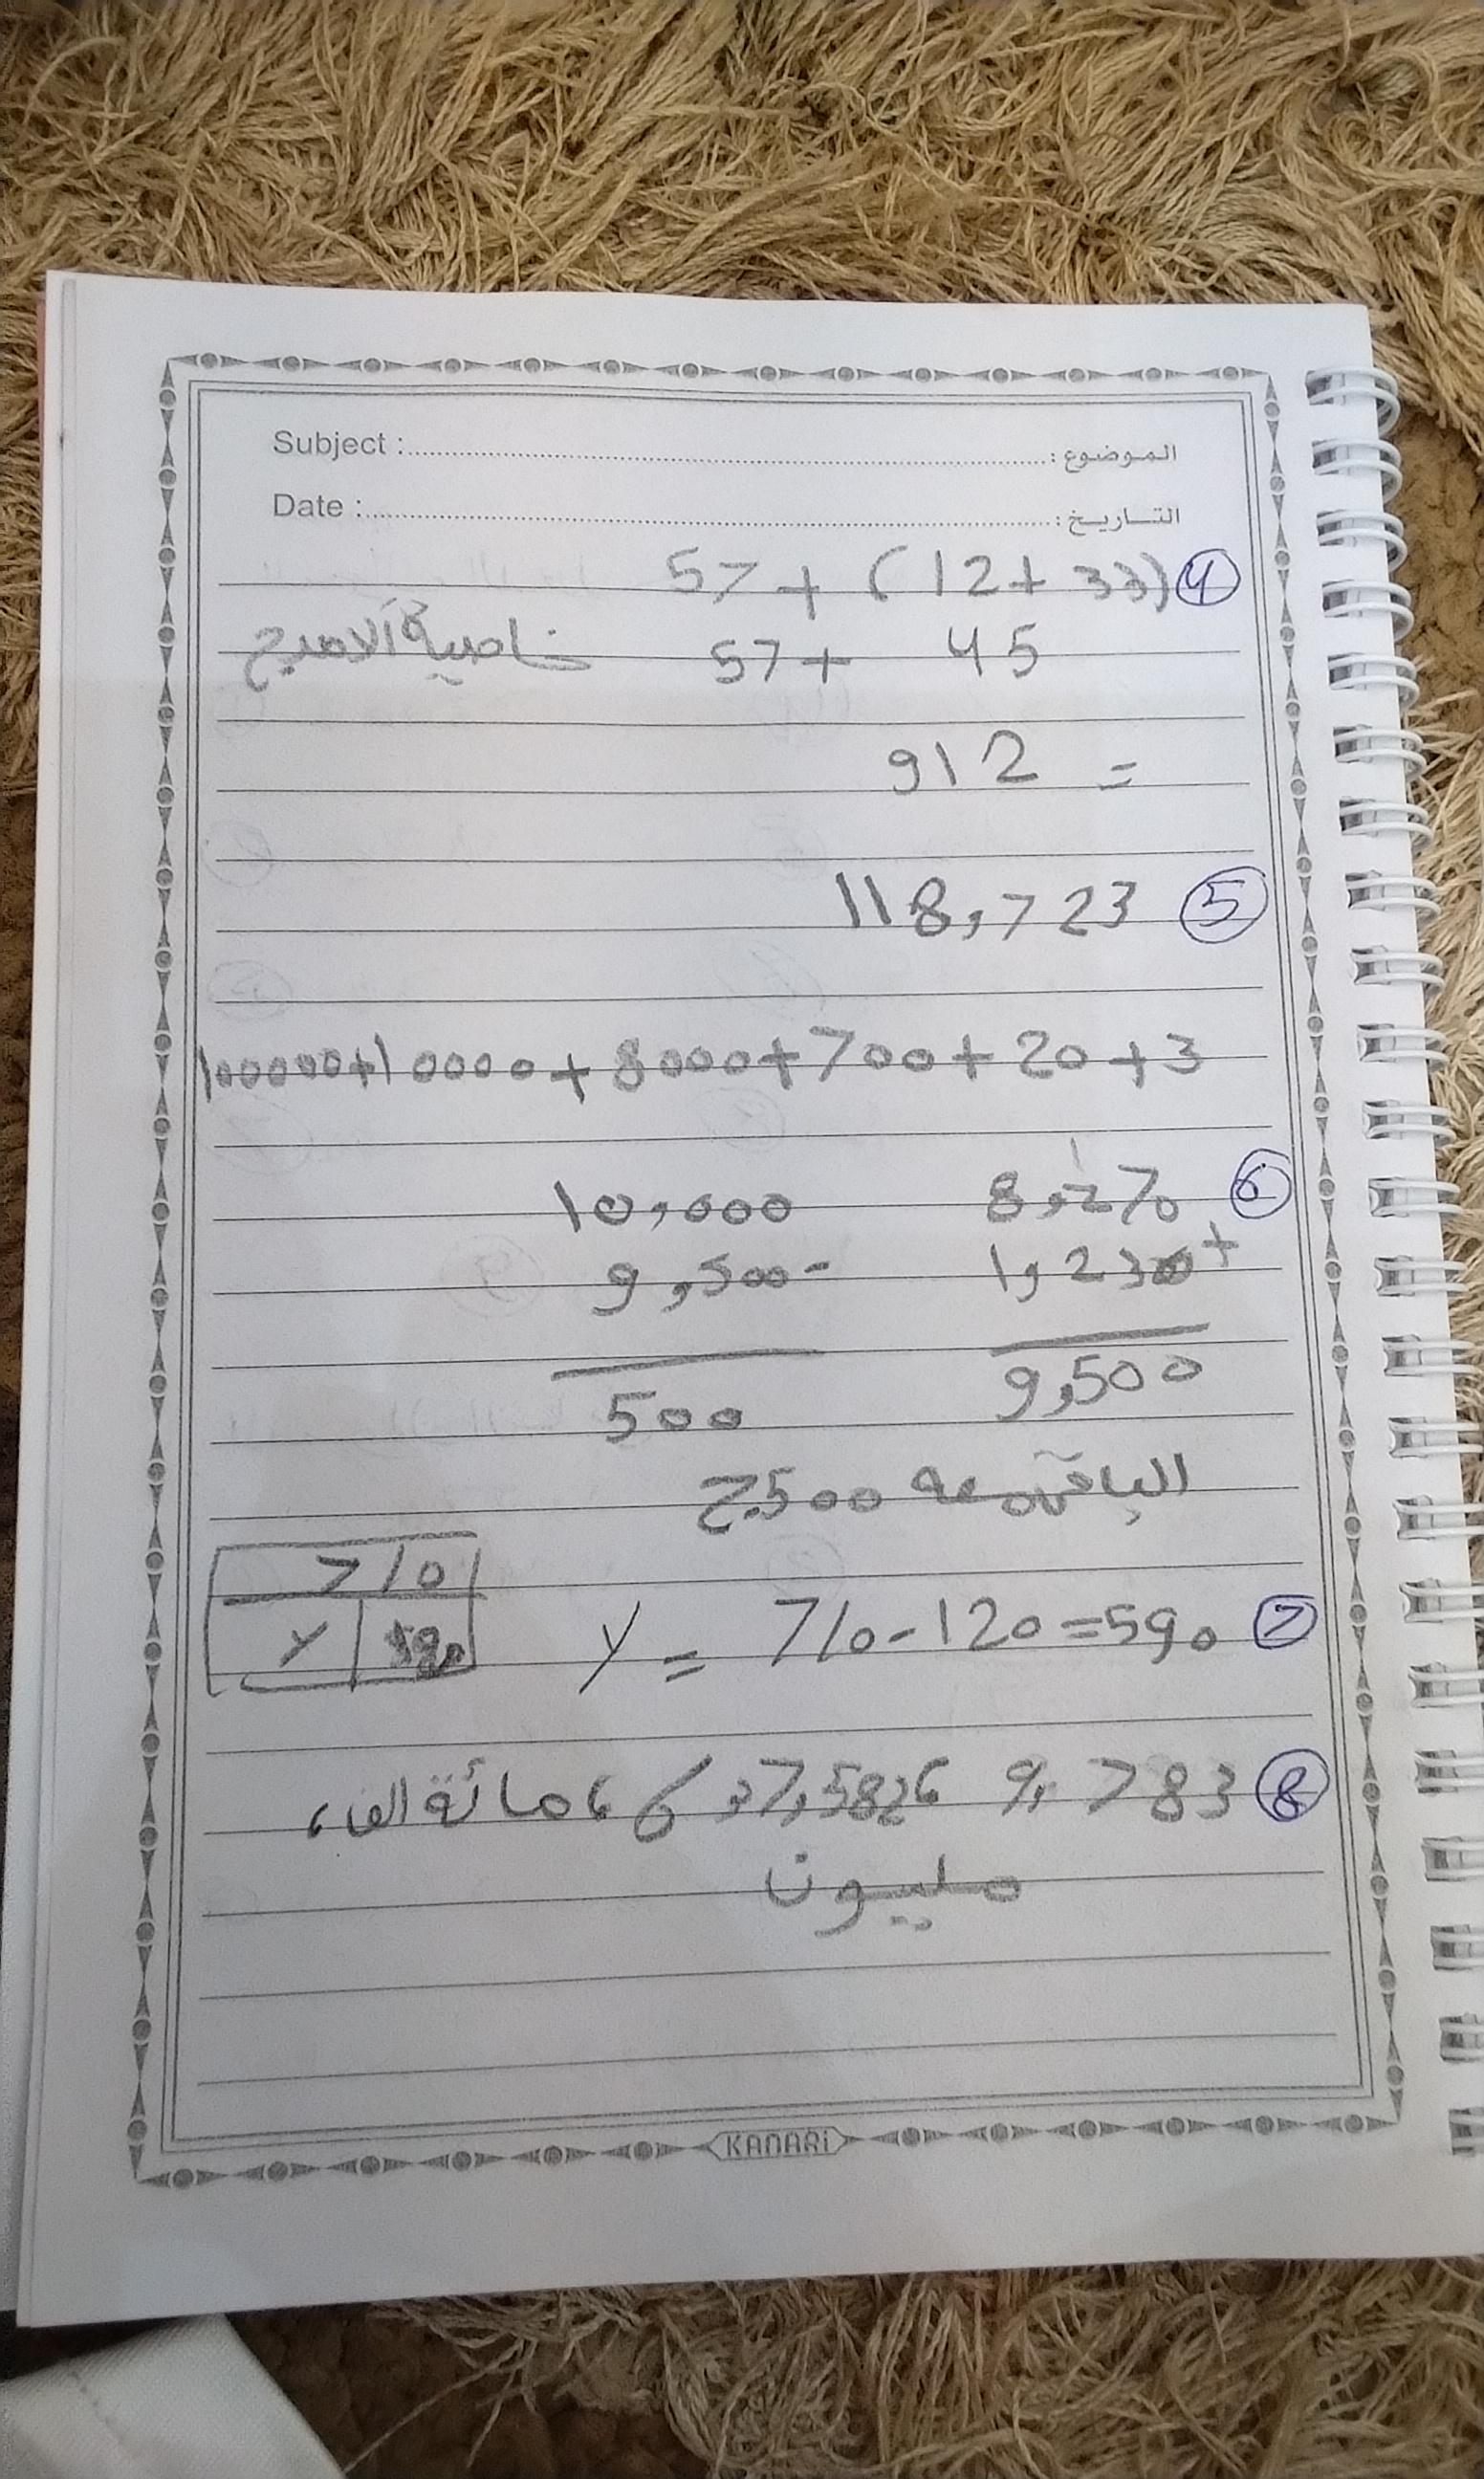 Subject : الموضوع :
Date : التاريخ :
④ 57 + (12 + 33)
57 + 45 خاصية الادمج
= 912
⑤ 118,723
100000+10000+8000+700+20+3
⑥ 8,270 10,000
1,230+ 9,500-
9,500 500
الباقى معه 500ج
710
⑦ y = 710-120=590
y 590
⑧ 783 6 37,582 6 مائة الف ،
مليون
KANARi